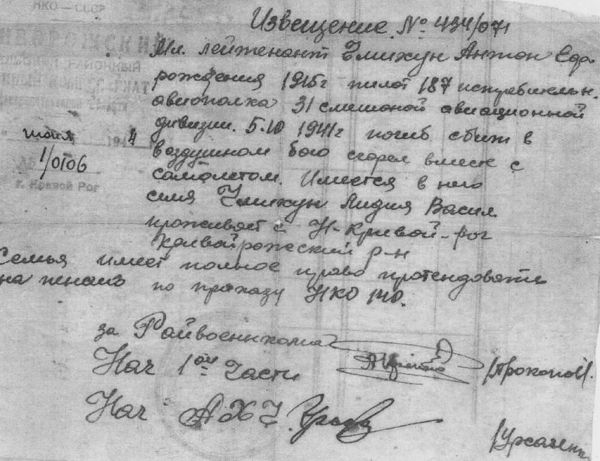 НКО — СССР
Извещение № 434/071
Мл. лейтенант Чмихун Антон
рождения 1915г пилот 187 истребительн.
авиополка 31 смешаной авиационной
дивизии. 5.10 1941г погиб сбит в
воздушном бою сгорел вмеск с
самолетом. Имеется в него
семя Чмихун Лидия Васил
проживает с Н-Кривой-рог
Криворожский р-н
Семья имеет полное право претендовать
на пенсию по приказу НКО
1/0106
г. Кривой Рог
за Райвоенкома
Нач 1ой Части
Нач АХЧ